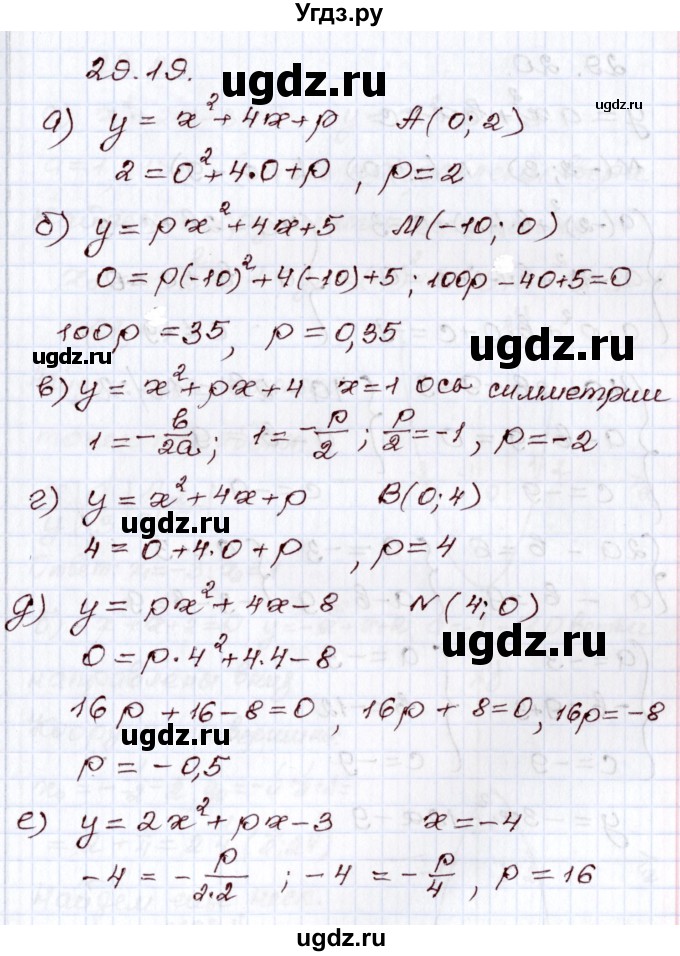 Угдз.ру
29.19.
ugdz.ru
ugdz.ru
а) y = x² + 4x + p A(0; 2)
2 = 0² + 4·0 + p , p = 2
б) y = px² + 4x + 5 M(-10; 0)
0 = p(-10)² + 4(-10) + 5 ; 100p - 40 + 5 = 0
100p = 35, p = 0,35
ugdz.ru
ugdz.ru
в) y = x² + px + 4 x = 1 ось симметрии
1 = -в/2а ; 1 = -p/2 ; p/2 = -1 , p = -2
г) y = x² + 4x + p B(0; 4)
ugdz.ru
4 = 0 + 4·0 + p , p = 4
д) y = px² + 4x - 8 N(4; 0)
ugdz.ru
0 = p·4² + 4·4 - 8
16p + 16 - 8 = 0, 16p + 8 = 0, 16p = -8
ugdz.ru
p = -0,5
е) y = 2x² + px - 3 x = -4
-4 = -p/2·2 ; -4 = -p/4 , p = 16
ugdz.ru
ugdz.ru